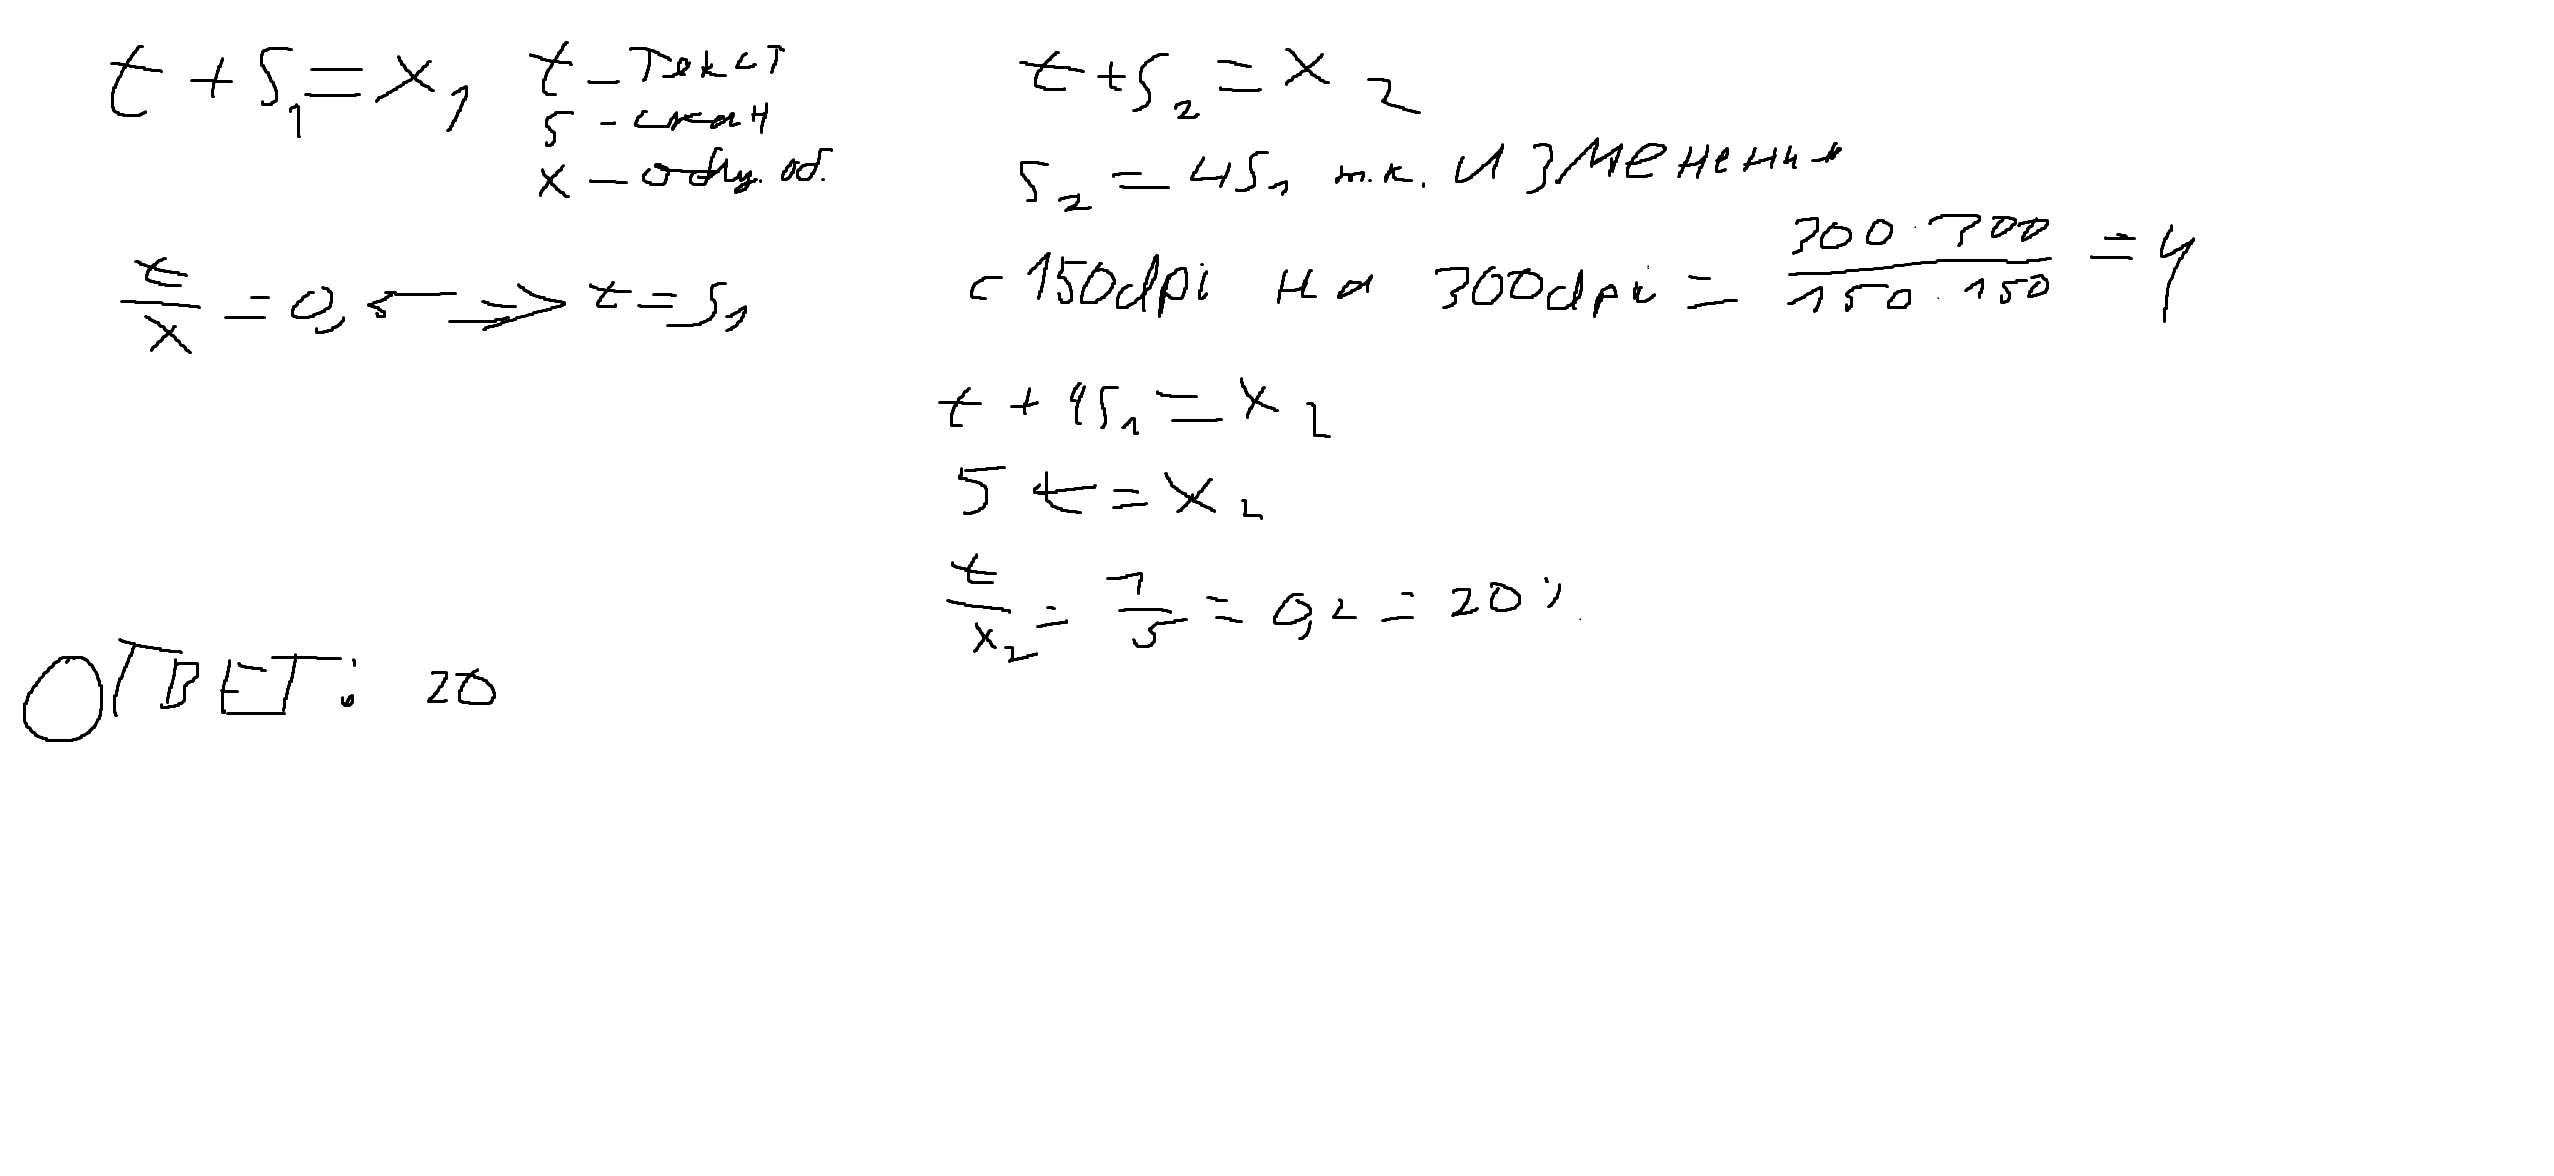 t + S₁ = x₁
t – Текст
S – скан
x – общ. об.
t/x = 0,5 ⟹ t = S₁
t + S₂ = x₂
S₂ = 4S₁ т.к. изменения
с 150dpi на 300dpi = (300 · 300)/(150 · 150) = 4
t + 4S₁ = x₂
5t = x₂
t/x₂ = 1/5 = 0,2 = 20%
ОТВЕТ: 20